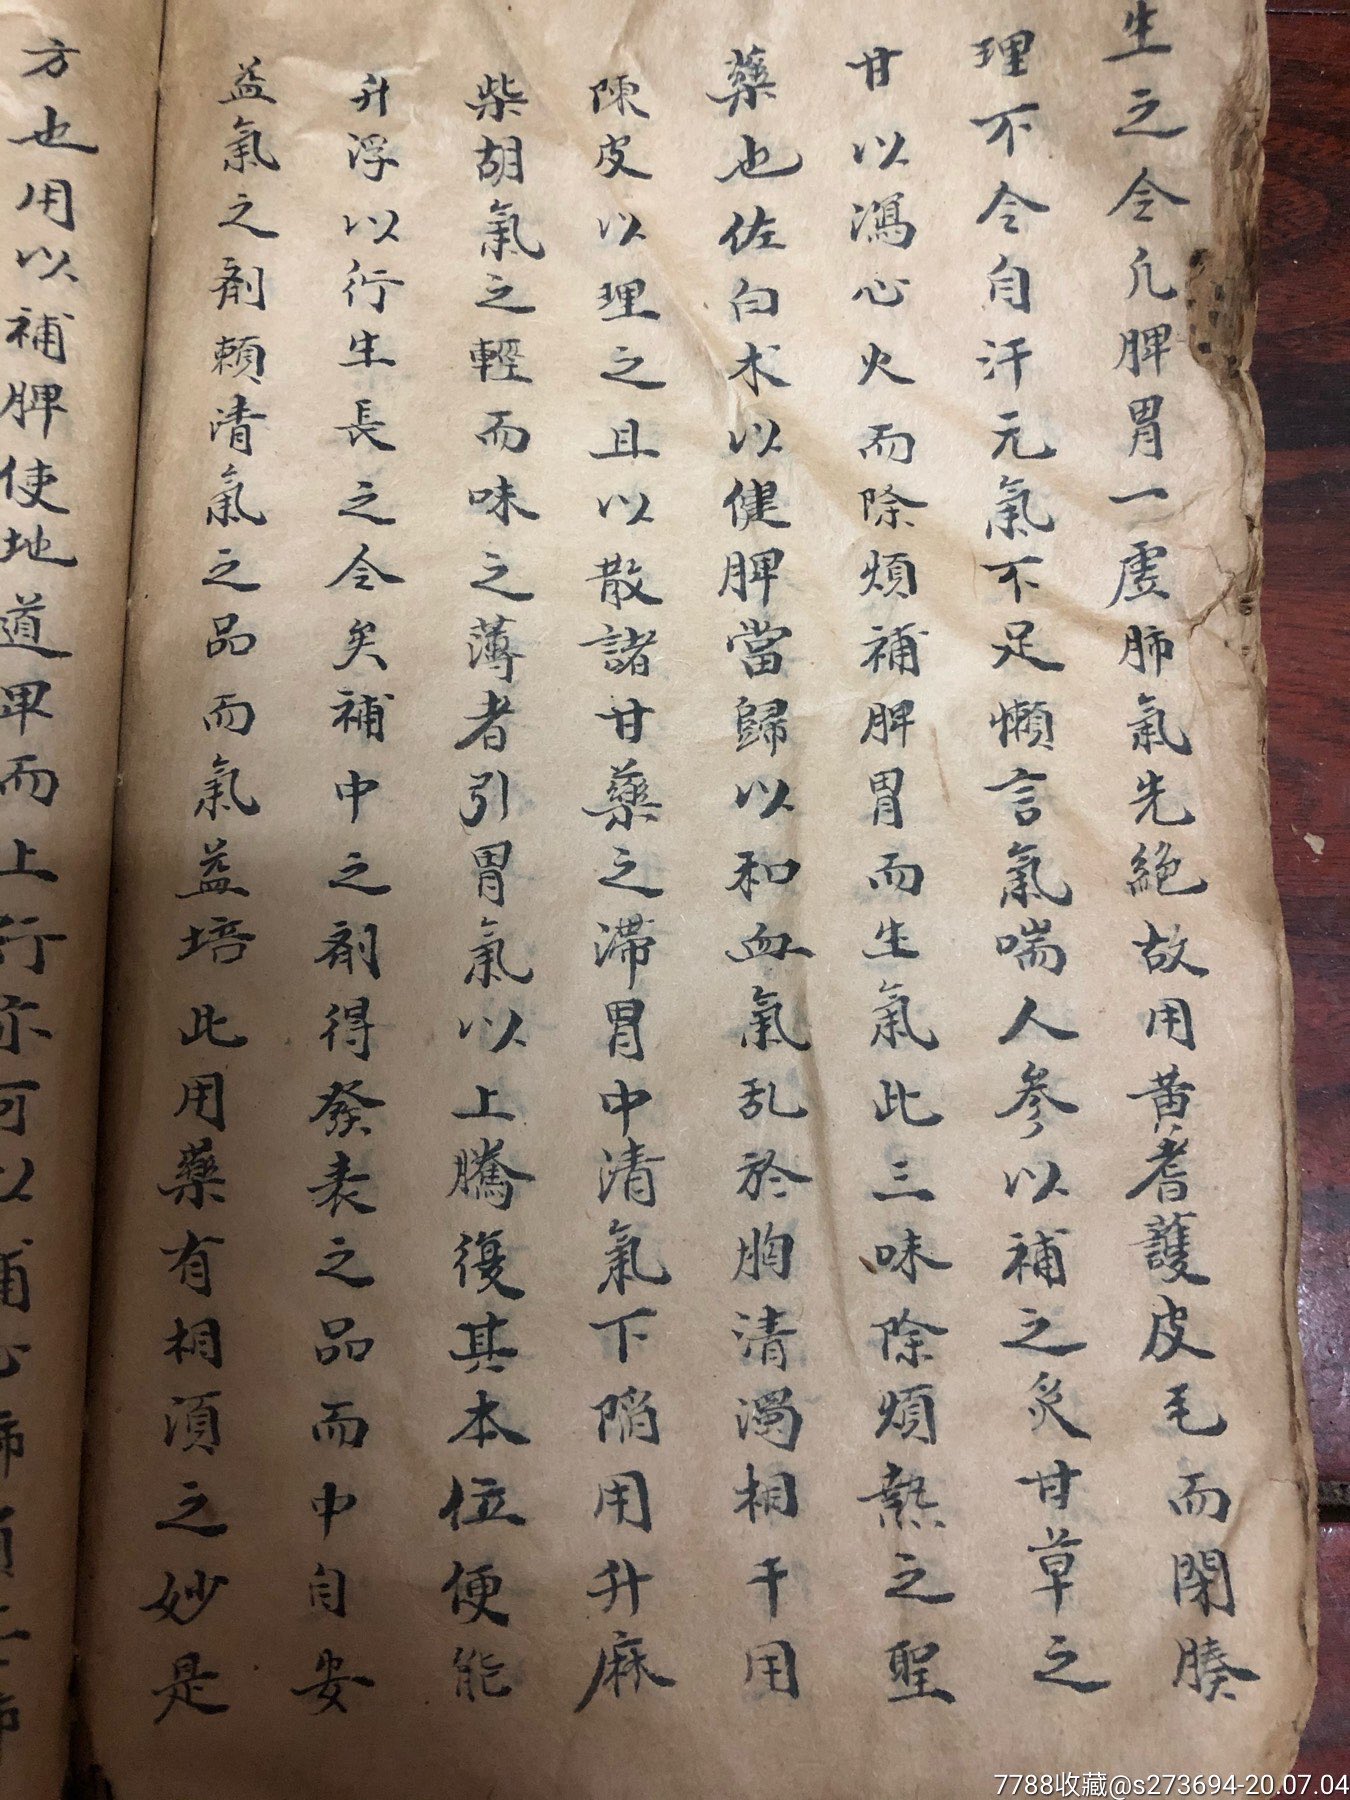 生之令凢脾胃一虗肺氣先絶故用黄耆護皮毛而閉腠
理不令自汗元氣不足懶言氣喘人參以補之炙甘草之
甘以瀉心火而除煩補脾胃而生氣此三味除煩熱之聖
藥也佐白术以健脾當歸以和血氣乱於胸清濁相干用
陳皮以理之且以散諸甘藥之滯胃中清氣下陥用升麻
柴胡氣之輕而味之薄者引胃氣以上騰復其本位便能
升浮以行生長之令矣補中之剤得發表之品而中自安
益氣之剤頼清氣之品而氣益培此用藥有相湏之妙是
方也用以補脾使地道卑而上行亦可以補心肺
7788收藏@s273694-20.07.04